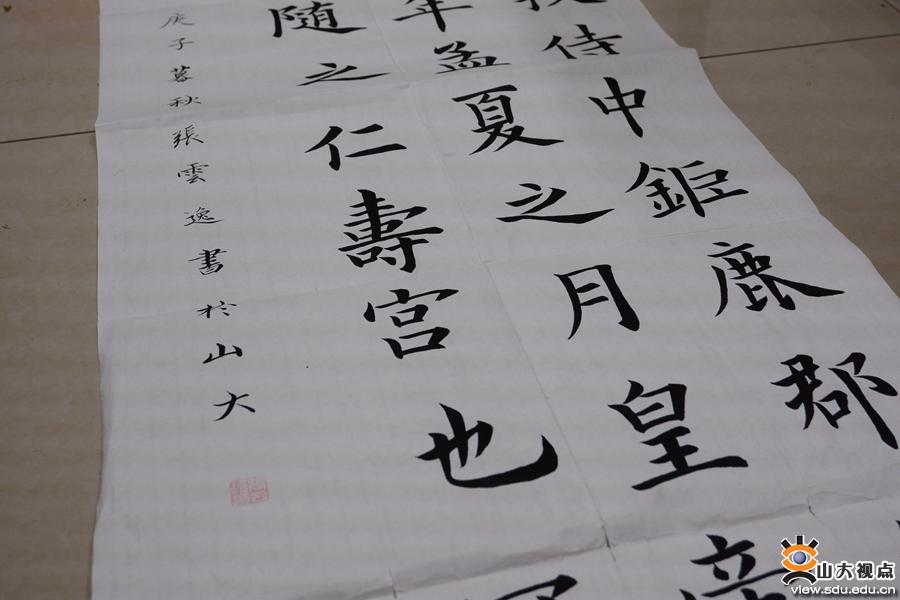 侍中鉅鹿郡
年孟夏之月皇
随之仁壽宮也
庚子暮秋張雲逸書於山大
山大视点
www.view.sdu.edu.cn